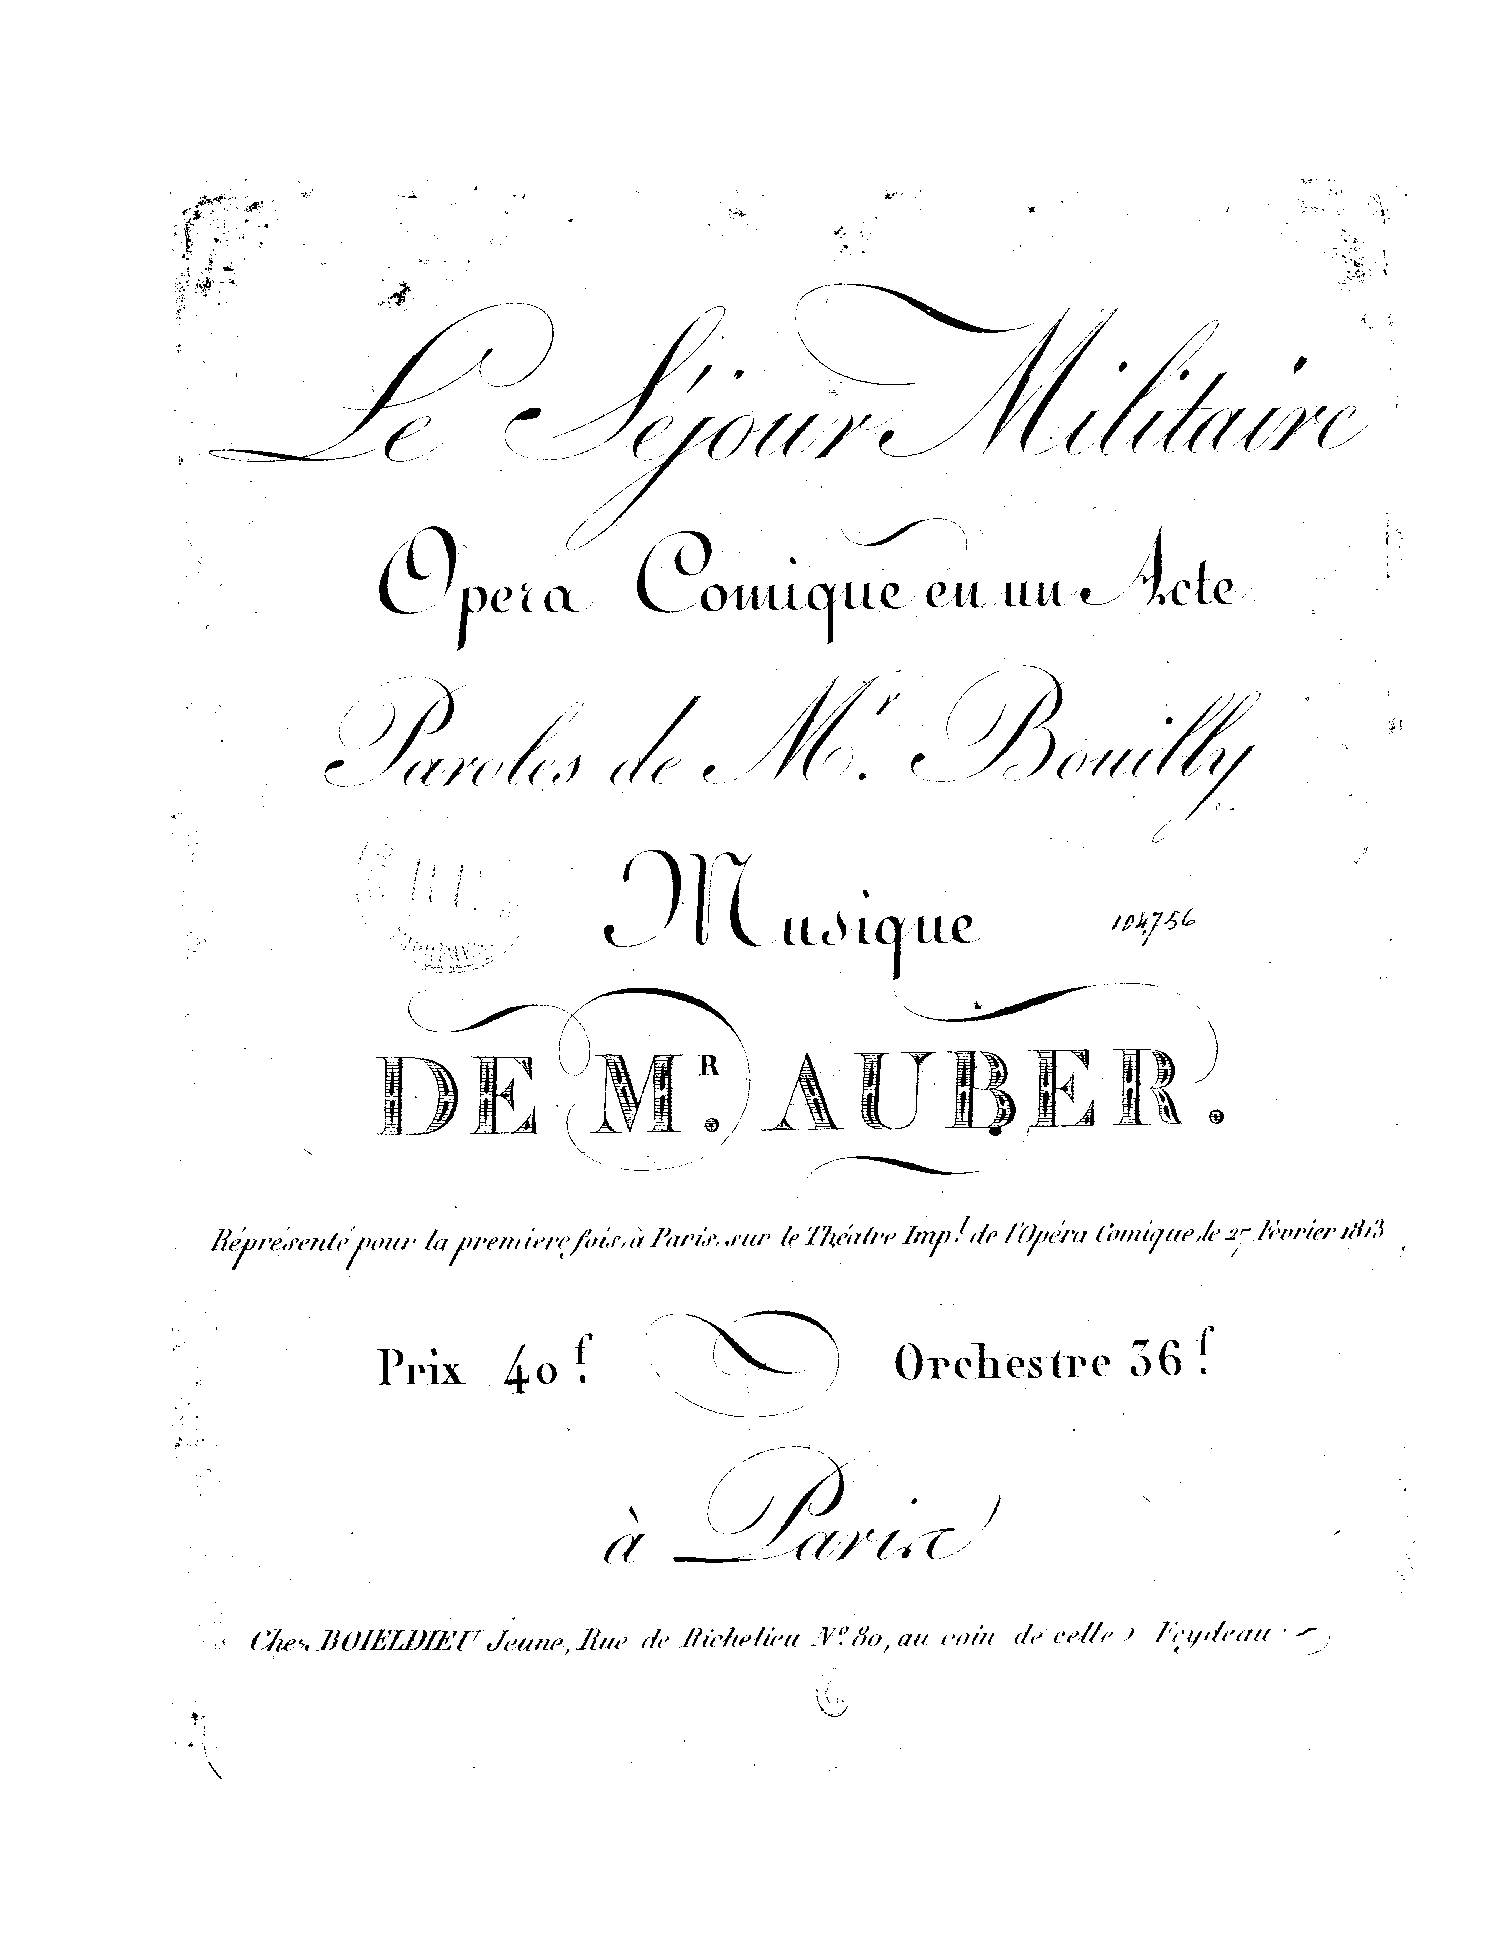 Le Séjour Militaire
Opera Comique en un Acte
Paroles de M.r Bouilly
Musique
104756
DE M.R AUBER.
Réprésenté pour la premiere fois, à Paris, sur le Théatre Imp.l de l'Opéra Comique, le 27 Février 1813
Prix 40.f Orchestre 36.f
à Paris
Chez BOIELDIEU Jeune, Rue de Richelieu N.o 80, au coin de celle Feydeau